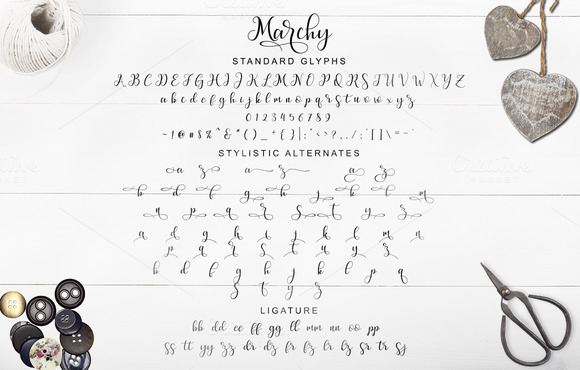 Marchy
STANDARD GLYPHS
A B C D E F G H I J K L M N O P Q R S T U V W X Y Z
a b c d e f g h i j k l m n o p q r s t u v w x y z
0 1 2 3 4 5 6 7 8 9
~ ! @ # $ % ^ & * ( ) _ + { } | : " < > ? . . / ; ' [ ] \ = - `
STYLISTIC ALTERNATES
a z a z a z
b d f g h j k l m
n p q r s t u y z
a d g h i j k l m n
p q r s t u y z
b d f g h j k l p q
s t y z
LIGATURE
bb dd ee ff gg ll mm nn oo pp
ss tt yy zz dr dz fr fz lr lz sr tr sj
Creative
MARKET